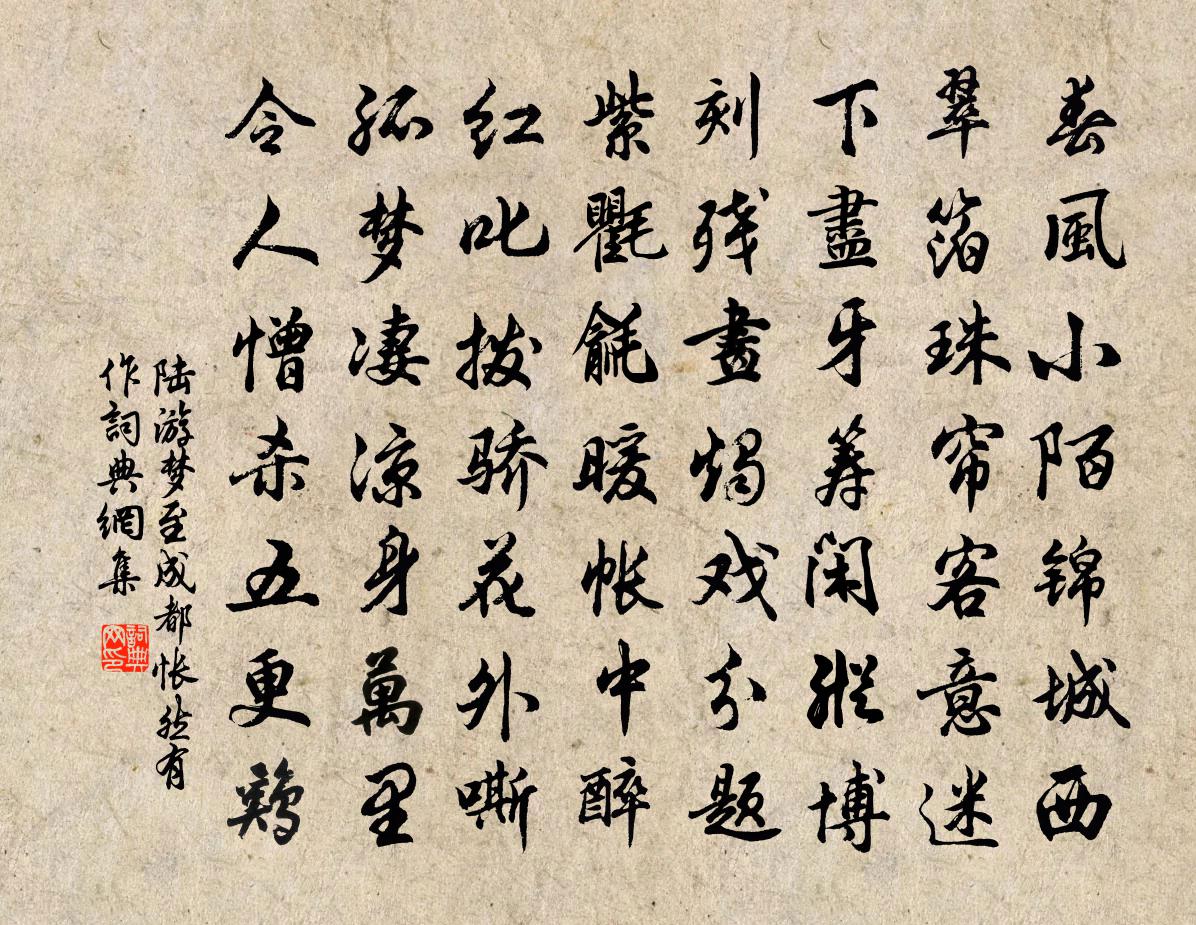 春風小陌锦城西
翠箔珠帘客意迷
下盡牙筹闲縱博
刻残畫烛戏分题
紫氍毹暖帐中醉
红叱拨骄花外嘶
孤梦凄凉身萬里
令人憎杀五更鷄
陆游梦至成都怅然有
作詞典網集
詞典
网印